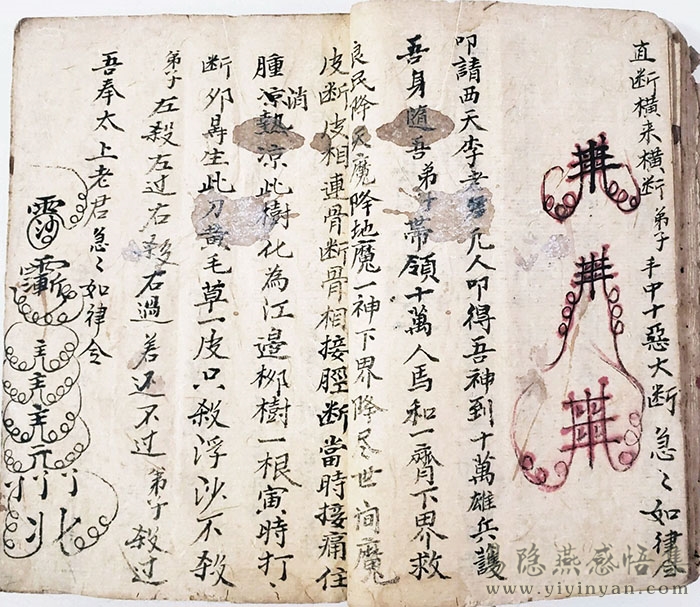 直断横来横断弟子手中十惡大断急々如律令
叩請西天李老君凡人叩得吾神到十萬雄兵護
吾身隨吾弟子帶領十萬人馬和一齊下界救
良民降天魔降地魔一神下界降尽世间魔
皮断皮相連骨断骨相接脛断當時接痛住
腫消凉熱凉此樹化為江邉柳樹一根寅時打
断卯時生此刀黄毛草一皮只殺浮沙不殺
弟子左殺左过右殺右過若还不过弟子殺过
吾奉太上老君急々如律令
易隐燕感悟集
www.yiyinyan.com